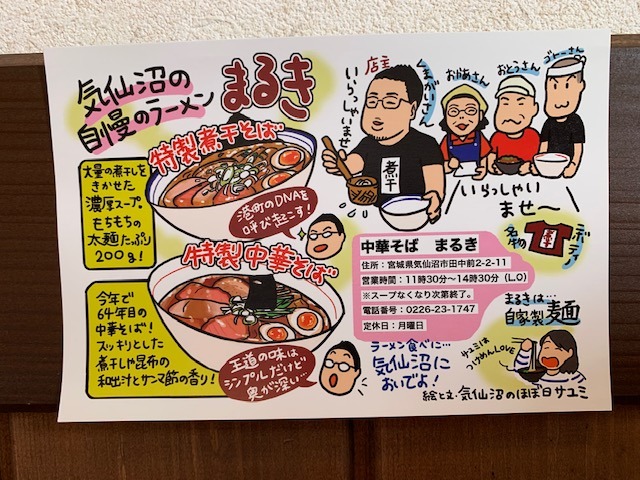 気仙沼の
自慢のラーメン
まるき
特製煮干そば
大量の煮干しを
きかせた
濃厚スープ
もちもちの
太麺たっぷり
200g!
港町のDNAを
呼び起こす!
特製中華そば
今年で
64年目の
中華そば!
スッキリとした
煮干しや昆布の
和出汁とサンマ節の香り!
王道の味は
シンプルだけど
奥が深い…
店主
くまがいさん
いらっしゃいませ
おかあさん
おとうさん
ゴトーさん
煮干
いらっしゃい
ませ〜
名物
デニブラ
中華そば まるき
住所:宮城県気仙沼市田中前2-2-11
営業時間:11時30分〜14時30分(L.O)
※スープなくなり次第終了。
電話番号:0226-23-1747
定休日:月曜日
まるきは…
自家製麺
ラーメン食べに…
気仙沼に
おいでよ!
サユミは
つけめんLOVE
絵と文・気仙沼のほぼ日サユミ